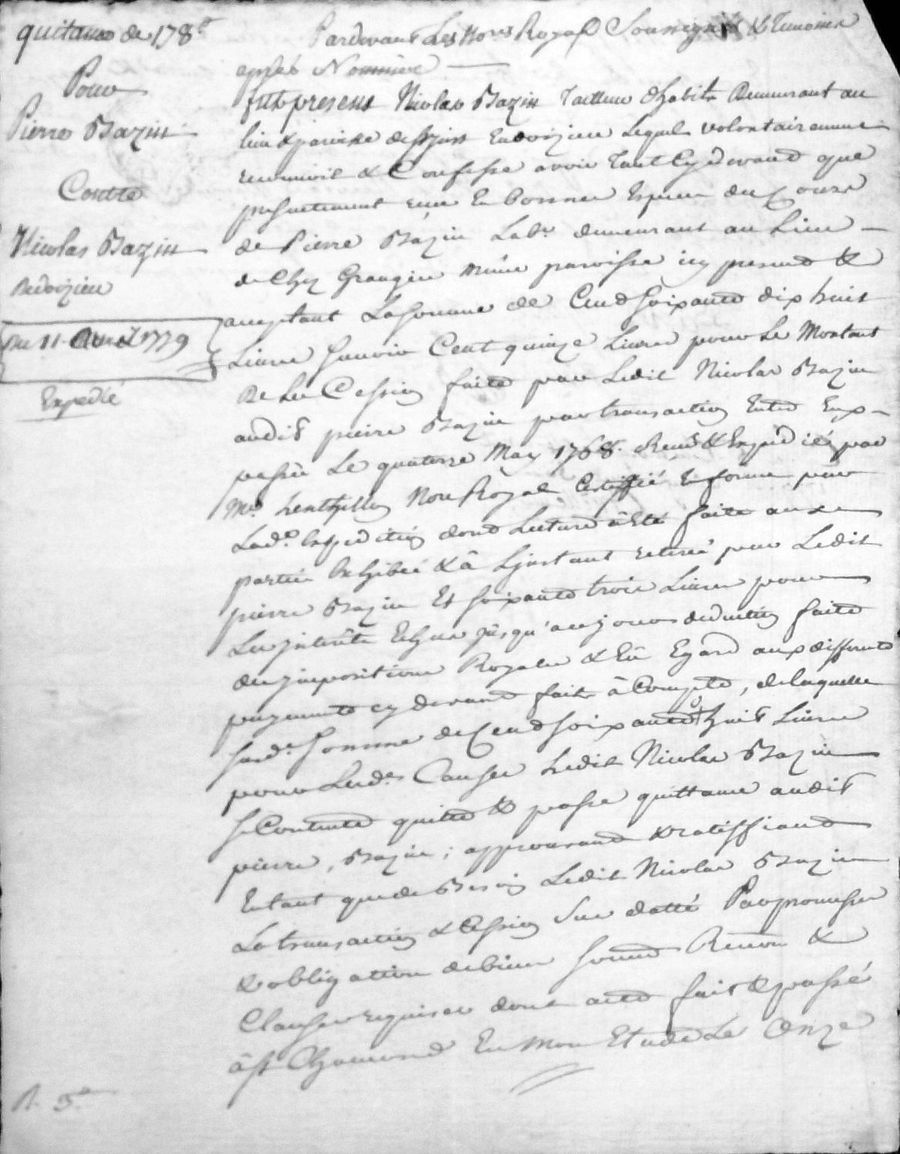 quitance de 178ᵗᵗ
Pour
Pierre Bazin
Contre
Nicolas Bazin
Du 11 Avril 1779
Expedié
Pardevant Les Noʳᵉˢ Royal Soussignés & Temoins
après Nommés
fut present Nicolas Bazin Tailleur d'habits Demeurant au
lieu & paroisse Lequel volontairement
reconnoit & Confesse avoir Tant Cydevant que
presentement reçu En bonnes Especes du Cours
de Pierre Bazin Labʳ demeurant au Lieu
de Chez Grangier même paroisse icy present &
acceptant La somme de Cent soixante dix huit
Livres sçavoir Cent quinze Livres pour Le Montant
De La Cession faite par Ledit Nicolas Bazin
audit pierre Bazin par transaction Entre Eux
passée Le quatorze May 1768. Reçue & Expediée par
Mᵉ Noʳᵉ Royal en forme, par
Ladᵉ Expedition dont Lecture à Eté faite aux
parties Exhibée & à L'jnstant retirée par Ledit
pierre Bazin Et soixante trois Livres pour
Les jnterêts Echus jusqu'aujourd deduction faite
des jmpositions Royales & Eu Egard aux differents
payements cy devant faits à Compte, de laquelle
susdᵉ somme de Cent soixante dix huit Livres
pour Lesdᵉˢ Causes Ledit Nicolas Bazin
se Contente quitte & passe quittance audit
pierre Bazin; approuvant & ratiffiant
En tant que de Besoin Ledit Nicolas Bazin
La transaction & Cession Sus datté Par promesses
& obligation de biens soumᵒⁿ Renonᵒⁿ &
Clauses requises dont acte fait & passé
à Sᵗ Chamond En mon Etude Le Onze